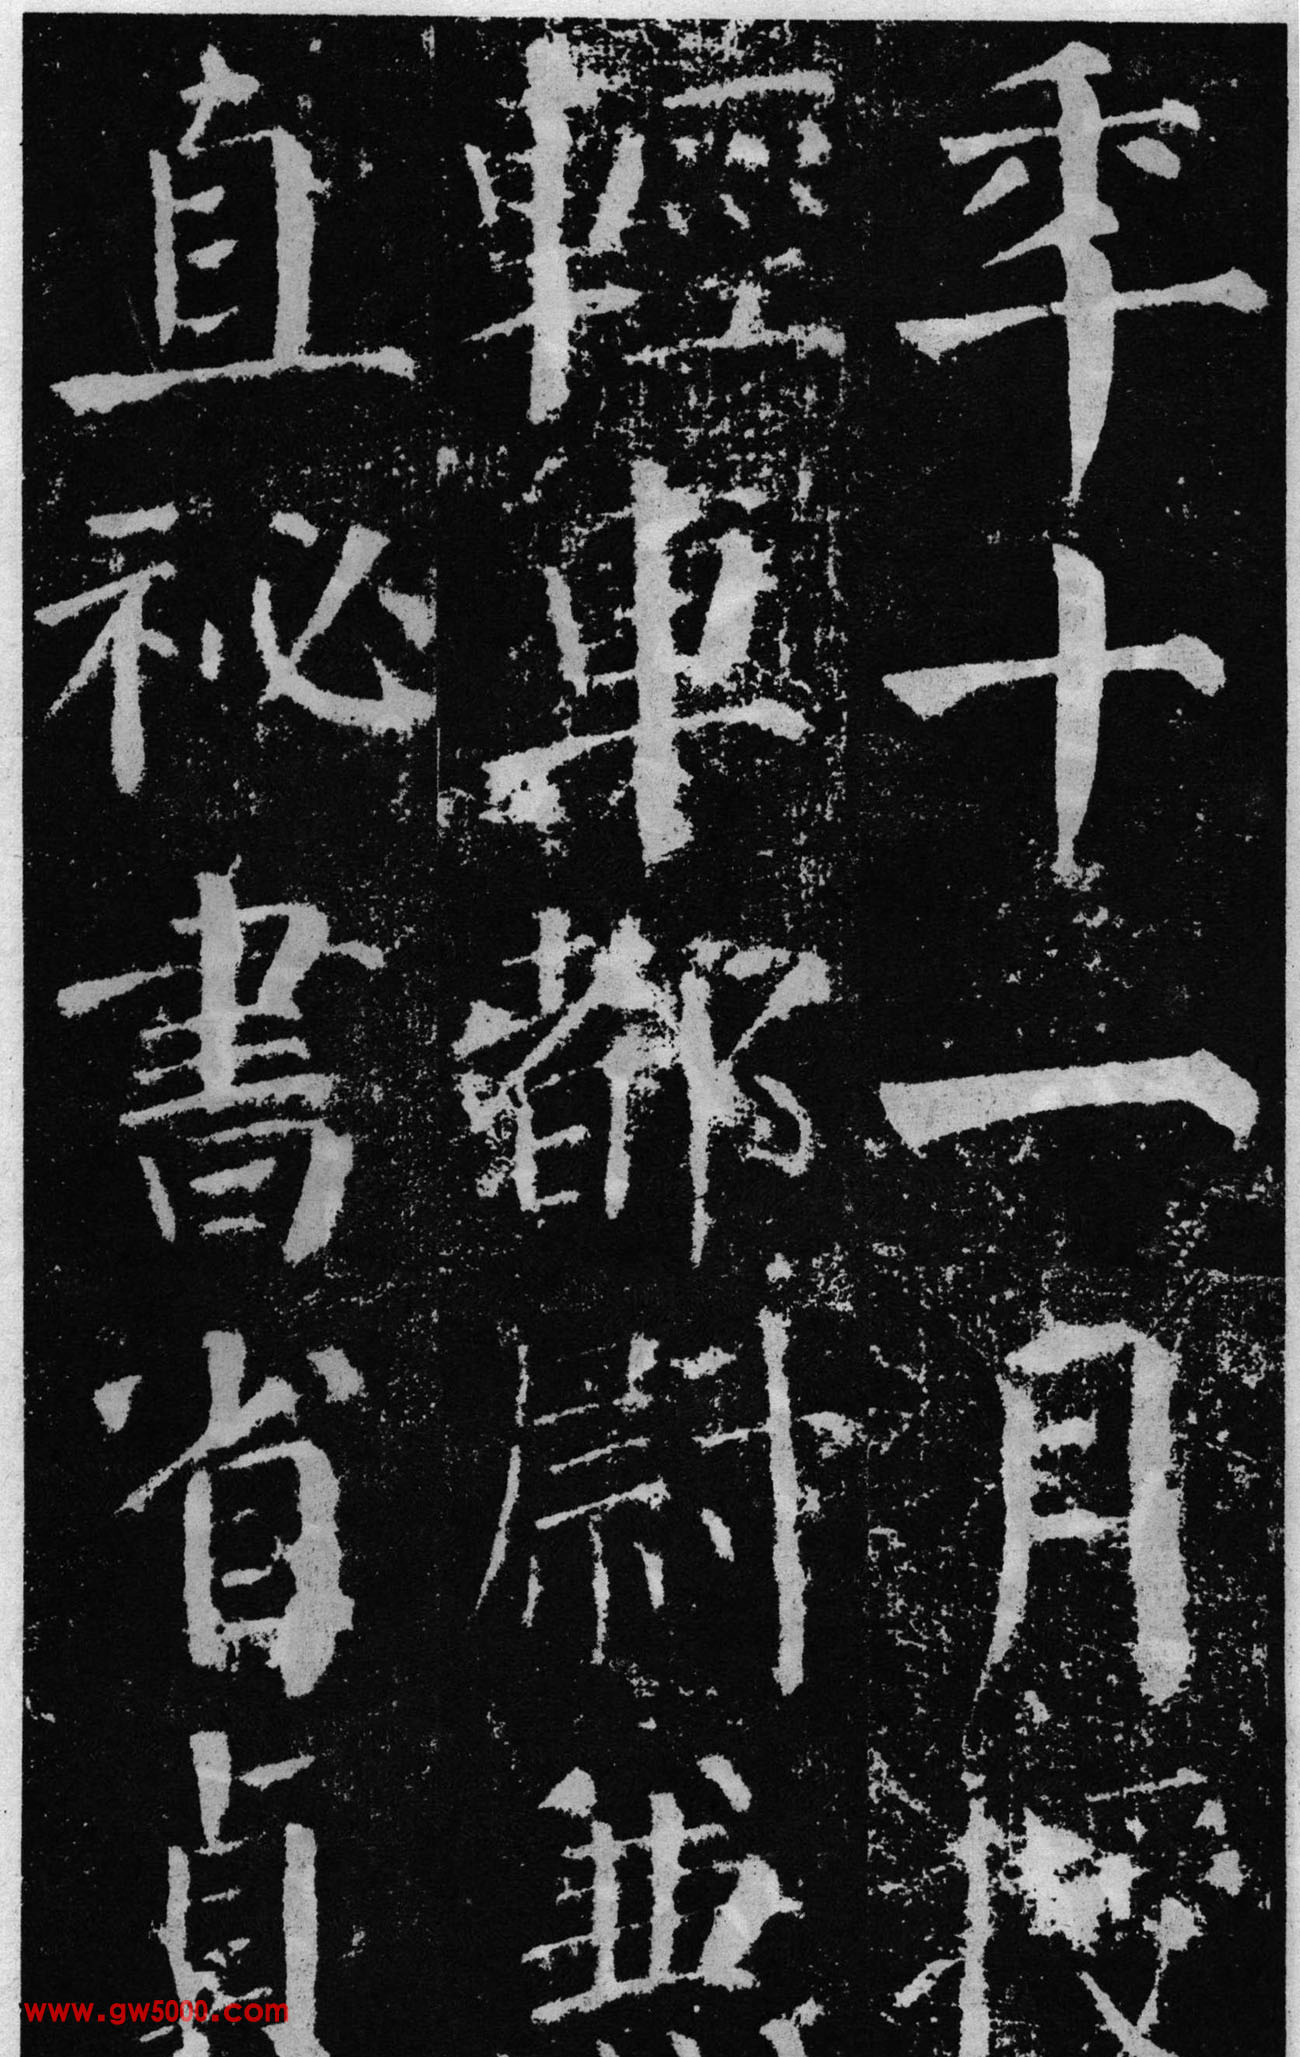 年十一月授
輕車都尉兼
直祕書省貞
www.gw5000.com